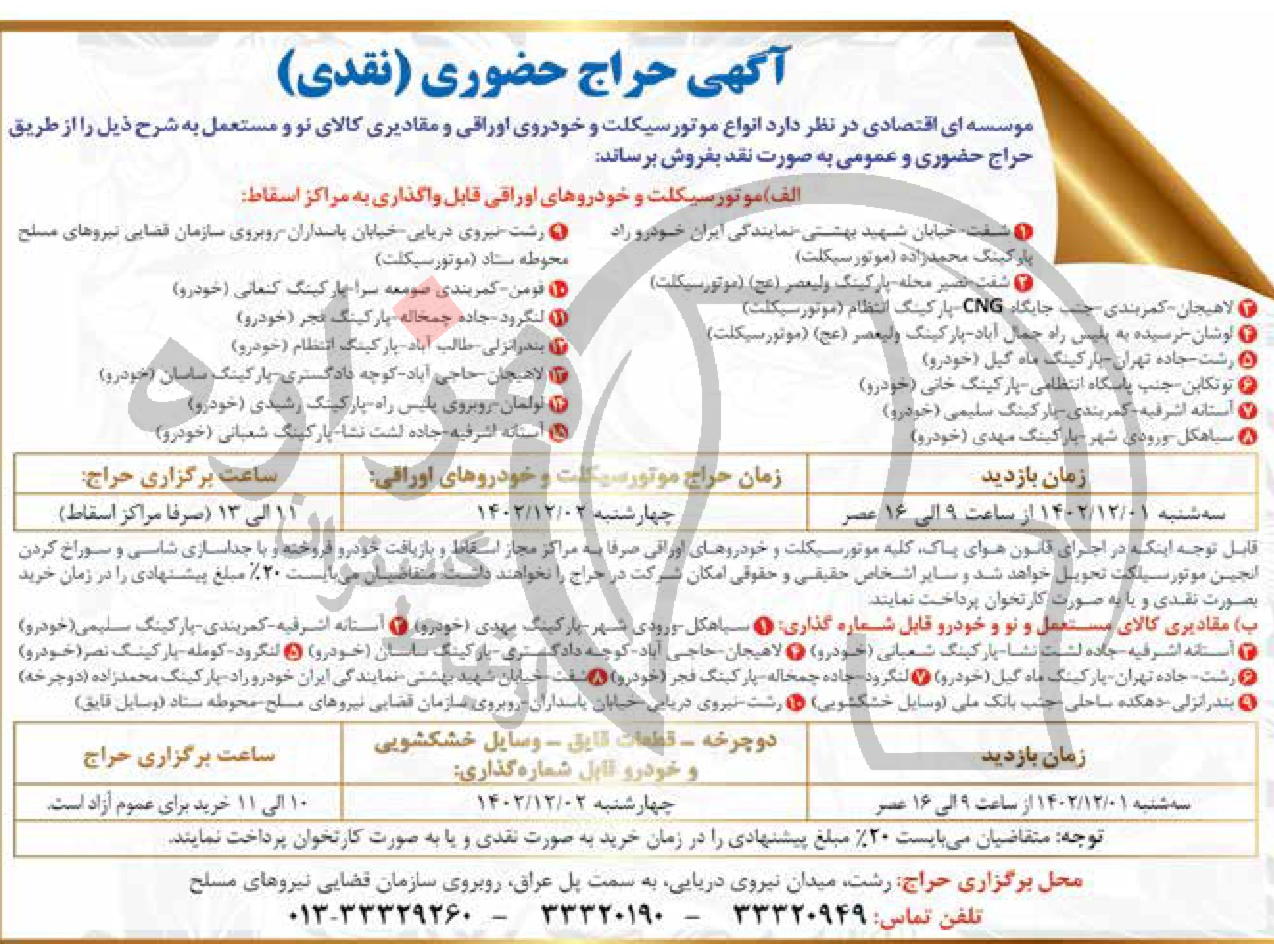 آگهی حراج حضوری (نقدی)
موسسه ای اقتصادی در نظر دارد انواع موتورسیکلت و خودروی اوراقی و مقادیری کالای نو و مستعمل به شرح ذیل را از طریق
حراج حضوری و عمومی به صورت نقد بفروش برساند:
الف)موتورسیکلت و خودروهای اوراقی قابل واگذاری به مراکز اسقاط:
۱ شفت-خیابان شهید بهشتی-نمایندگی ایران خودرو راد
پارکینگ محمدزاده (موتورسیکلت)
۲ شفت-نصیر محله-پارکینگ ولیعصر (عج) (موتورسیکلت)
۳ لاهیجان-کمربندی-جنب جایگاه CNG-پارکینگ انتظام (موتورسیکلت)
۴ لوشان-نرسیده به پلیس راه جمال آباد-پارکینگ ولیعصر (عج) (موتورسیکلت)
۵ رشت-جاده تهران-پارکینگ ماه گیل (خودرو)
۶ توتکابن-جنب پاسگاه انتظامی-پارکینگ خانی (خودرو)
۷ آستانه اشرفیه-کمربندی-پارکینگ سلیمی (خودرو)
۸ سیاهکل-ورودی شهر-پارکینگ مهدی (خودرو)
۹ رشت-نیروی دریایی-خیابان پاسداران-روبروی سازمان قضایی نیروهای مسلح
محوطه ستاد (موتورسیکلت)
۱۰ فومن-کمربندی صومعه سرا-پارکینگ کنعانی (خودرو)
۱۱ لنگرود-جاده چمخاله-پارکینگ فجر (خودرو)
۱۲ بندرانزلی-طالب آباد-پارکینگ انتظام (خودرو)
۱۳ لاهیجان-حاجی آباد-کوچه دادگستری-پارکینگ ساسان (خودرو)
۱۴ تولمان-روبروی پلیس راه-پارکینگ رشیدی (خودرو)
۱۵ آستانه اشرفیه-جاده لشت نشا-پارکینگ شعبانی (خودرو)
زمان بازدید زمان حراج موتورسیکلت و خودروهای اوراقی: ساعت برگزاری حراج:
سه‌شنبه ۱۴۰۲/۱۲/۰۱ از ساعت ۹ الی ۱۶ عصر چهارشنبه ۱۴۰۲/۱۲/۰۲ ۱۱ الی ۱۳ (صرفا مراکز اسقاط)
قابل توجه اینکه در اجرای قانون هوای پاک، کلیه موتورسیکلت و خودروهای اوراقی صرفا به مراکز مجاز اسقاط و بازیافت خودرو فروخته و با جداسازی شاسی و سوراخ کردن
انجین موتورسیلکت تحویل خواهد شد و سایر اشخاص حقیقی و حقوقی امکان شرکت در حراج را نخواهند داشت. متقاضیان می‌بایست ۲۰٪ مبلغ پیشنهادی را در زمان خرید
بصورت نقدی و یا به صورت کارتخوان پرداخت نمایند.
ب) مقادیری کالای مستعمل و نو و خودرو قابل شماره گذاری: ۱ سیاهکل-ورودی شهر-پارکینگ مهدی (خودرو) ۲ آستانه اشرفیه-کمربندی-پارکینگ سلیمی(خودرو)
۳ آستانه اشرفیه-جاده لشت نشا-پارکینگ شعبانی (خودرو) ۴ لاهیجان-حاجی آباد-کوچه دادگستری-پارکینگ ساسان (خودرو) ۵ لنگرود-کومله-پارکینگ نصر(خودرو)
۶ رشت-جاده تهران-پارکینگ ماه گیل (خودرو) ۷ لنگرود-جاده چمخاله-پارکینگ فجر (خودرو) ۸ شفت-خیابان شهید بهشتی-نمایندگی ایران خودرو راد-پارکینگ محمدزاده (دوچرخه)
۹ بندرانزلی-دهکده ساحلی-جنب بانک ملی (وسایل خشکشویی) ۱۰ رشت-نیروی دریایی-خیابان پاسداران-روبروی سازمان قضایی نیروهای مسلح-محوطه ستاد (وسایل قایق)
زمان بازدید دوچرخه - قطعات قایق - وسایل خشکشویی ساعت برگزاری حراج
و خودرو قابل شماره‌گذاری:
سه‌شنبه ۱۴۰۲/۱۲/۰۱ از ساعت ۹ الی ۱۶ عصر چهارشنبه ۱۴۰۲/۱۲/۰۲ ۱۰ الی ۱۱ خرید برای عموم آزاد است.
توجه: متقاضیان می‌بایست ۲۰٪ مبلغ پیشنهادی را در زمان خرید به صورت نقدی و یا به صورت کارتخوان پرداخت نمایند.
محل برگزاری حراج: رشت، میدان نیروی دریایی، به سمت پل عراق، روبروی سازمان قضایی نیروهای مسلح
تلفن تماس: ۳۳۳۲۰۹۴۹ - ۳۳۳۲۰۱۹۰ - ۰۱۳-۳۳۳۲۹۲۶۰
هزاره